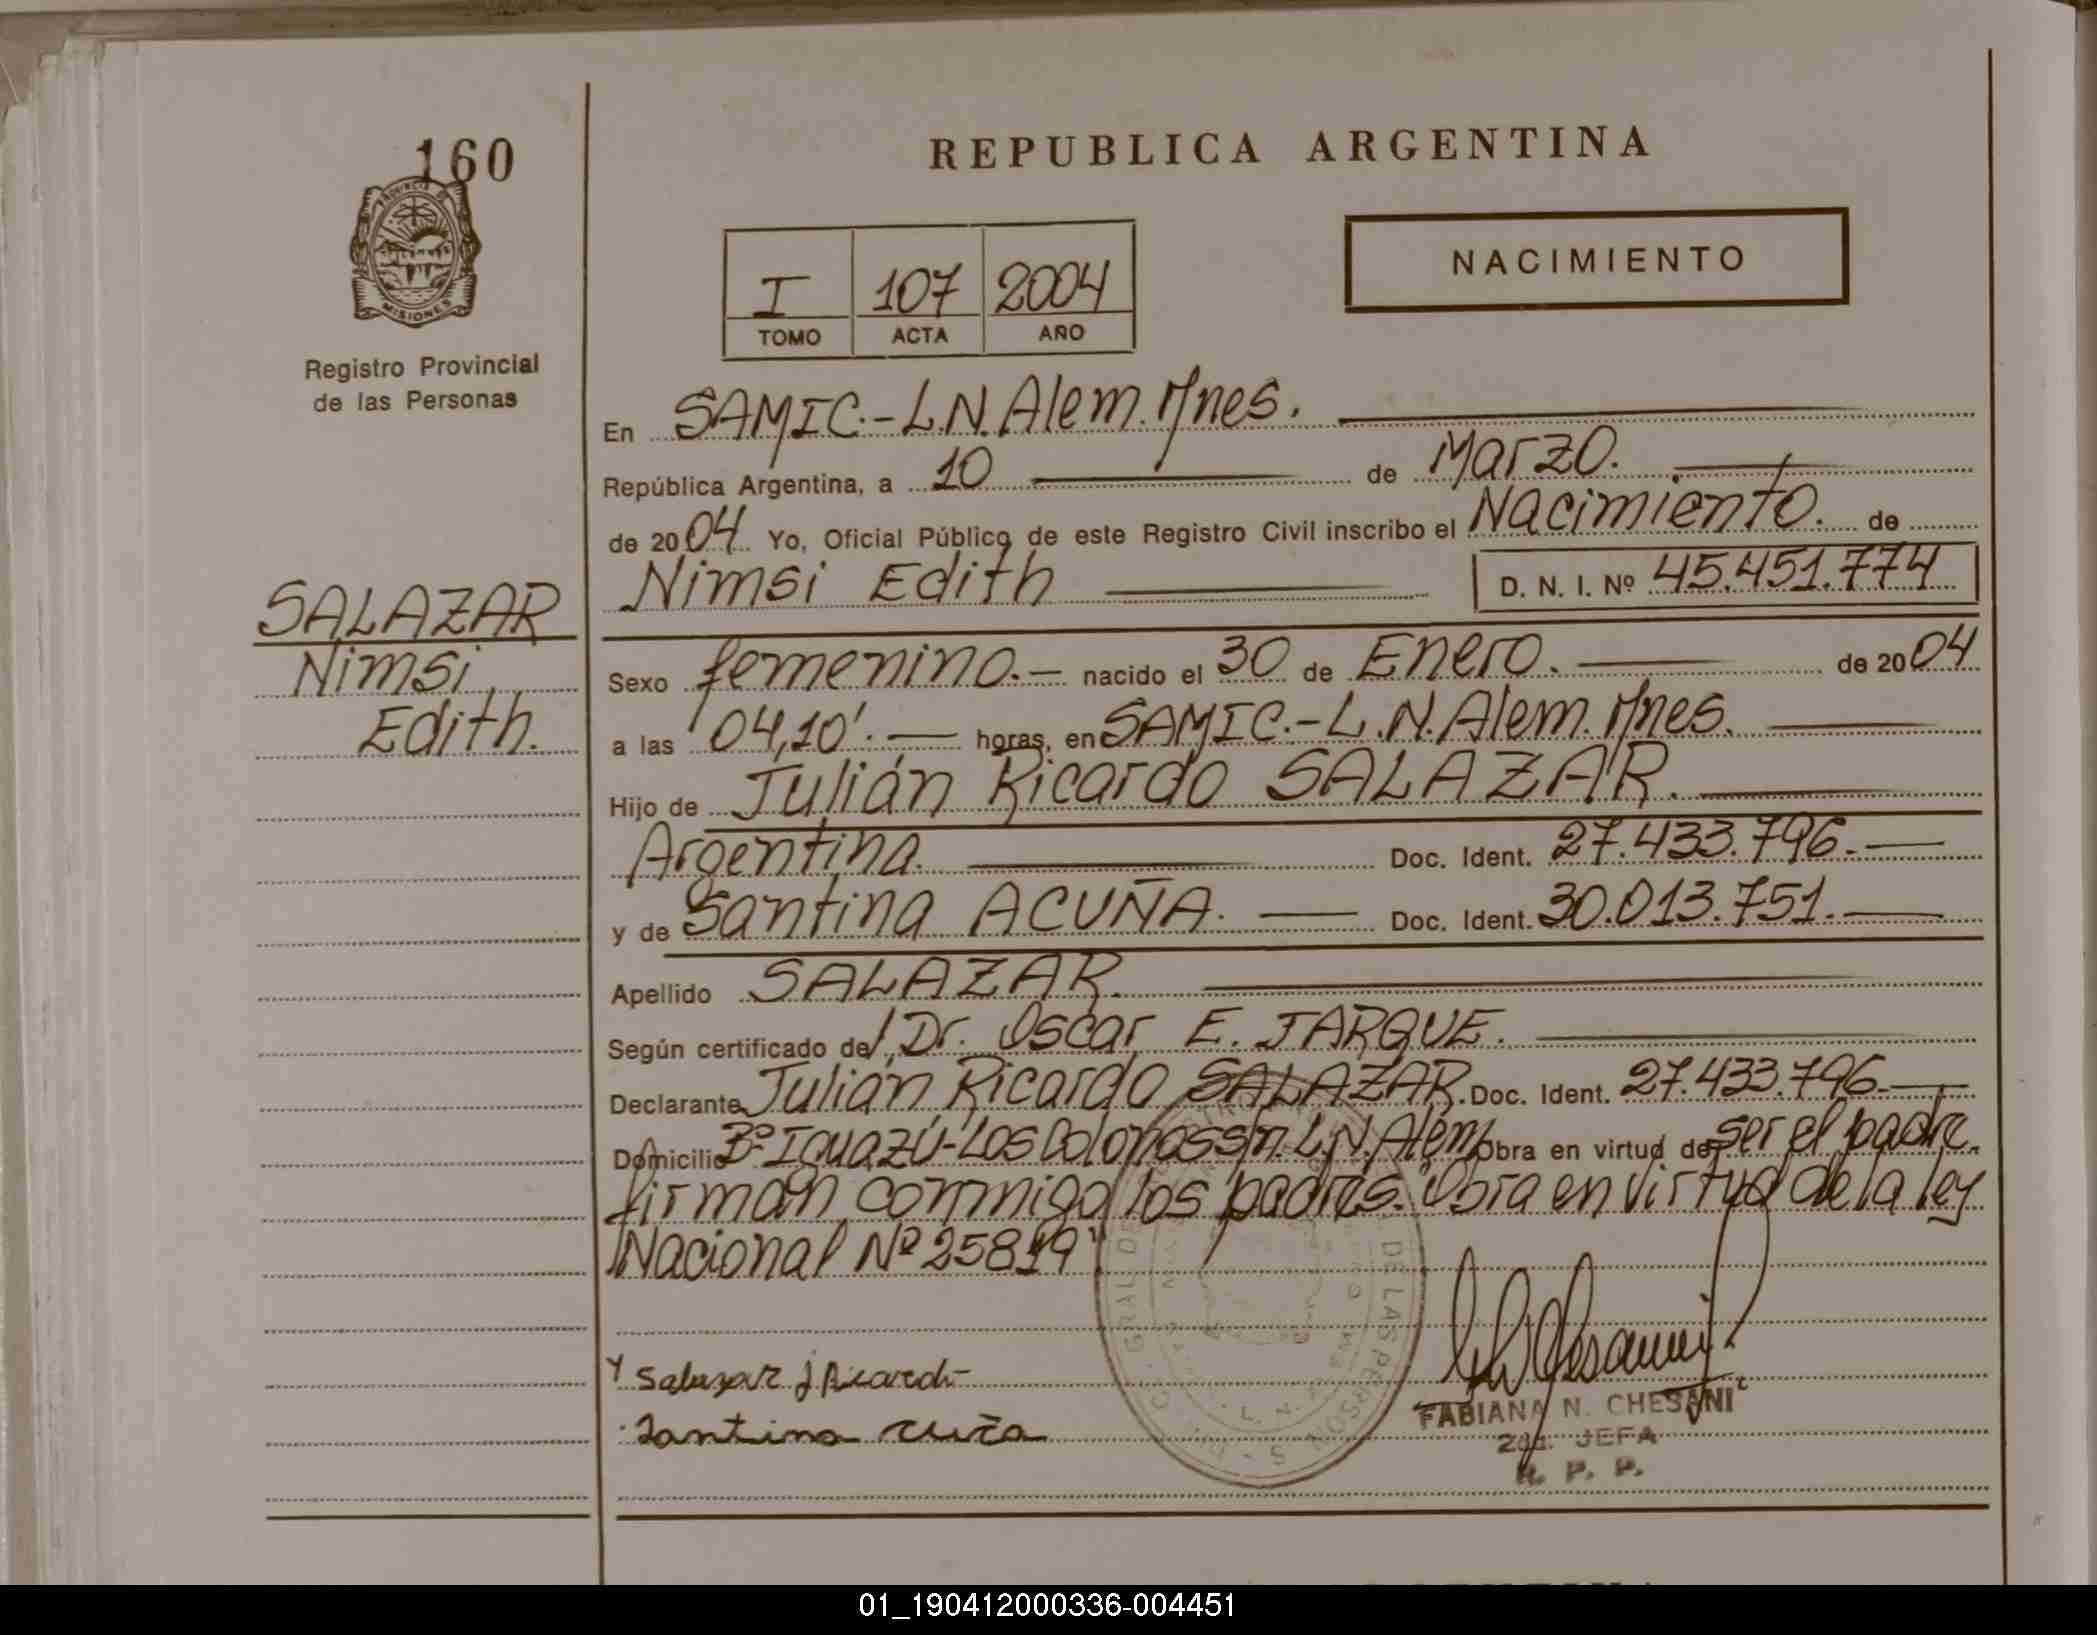 160
PROVINCIA DE
MISIONES
Registro Provincial
de las Personas
REPUBLICA ARGENTINA
I 107 2004
TOMO ACTA AÑO
NACIMIENTO
En SAMIC.-L.N.Alem.Mnes.
República Argentina, a 10 de Marzo.
de 2004. Yo, Oficial Público de este Registro Civil inscribo el Nacimiento. de
Nimsi Edith D. N. I. Nº 45.451.774
SALAZAR
Nimsi
Edith.
Sexo femenino.- nacido el 30 de Enero. de 2004
a las 04,10'. horas, en SAMIC.-L.N.Alem.Mnes.
Hijo de Julián Ricardo SALAZAR.
Argentina. Doc. Ident. 27.433.796.
y de Santina ACUÑA. Doc. Ident. 30.013.751.
Apellido SALAZAR.
Según certificado del, Dr. Oscar E. JARQUE.
Declarante Julián Ricardo SALAZAR. Doc. Ident. 27.433.796.
Domicilio Bº Iguazú-Los Colonos s/n. L.N.Alem Obra en virtud de ser el padre.
firman conmigo los padres. Obra en virtud de la ley
Nacional Nº 25819"
Salazar J. Ricardo
Santina
DE LAS PERSONAS
FABIANA N. CHESANI
2da. JEFA
R. P. P.
01_190412000336-004451